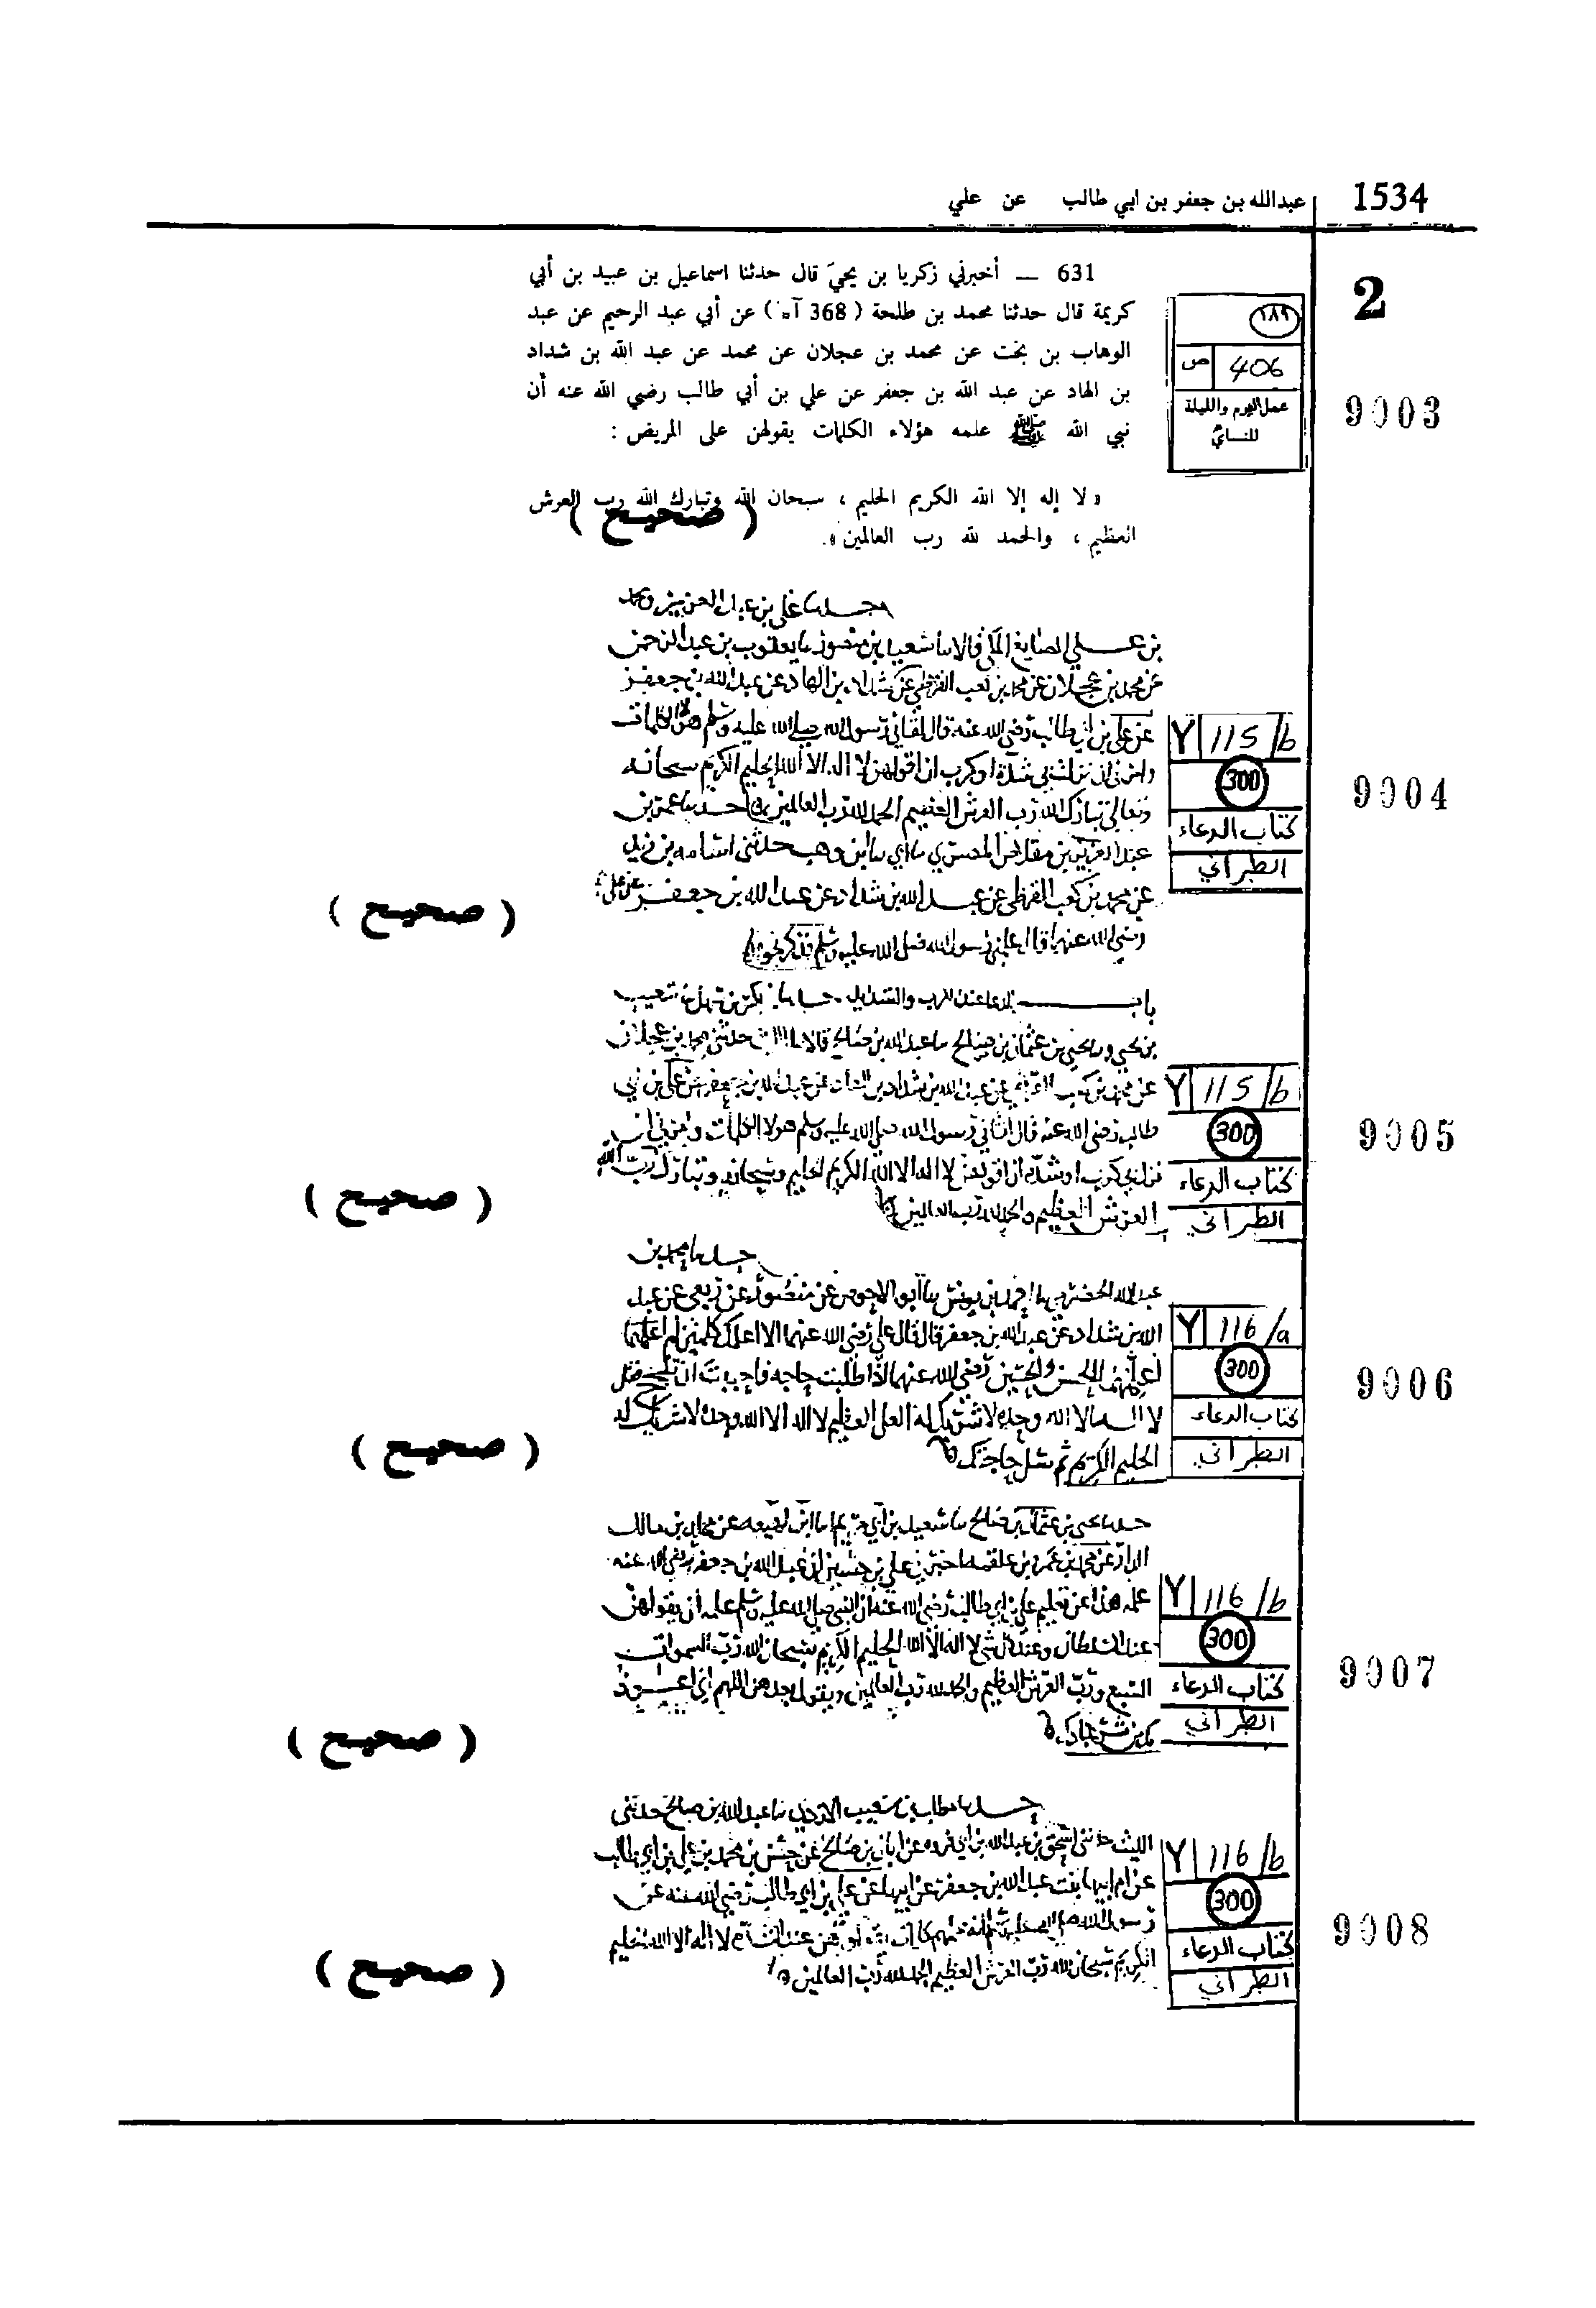 1534
عبدالله بن جعفر بن ابي طالب عن علي
2
631 — أخبرني زكريا بن يحيى قال حدثنا اسماعيل بن عبيد بن أبي
كريمة قال حدثنا محمد بن طلحة ( 368 آ ) عن أبي عبد الرحيم عن عبد
الوهاب بن بخت عن محمد بن عجلان عن محمد عن عبد الله بن شداد
بن الهاد عن عبد الله بن جعفر عن علي بن أبي طالب رضي الله عنه أن
نبي الله ﷺ علمه هؤلاء الكلمات يقولهن على المريض :
« لا إله إلا الله الكريم الحليم ، سبحان الله وتبارك الله رب العرش
العظيم ، والحمد لله رب العالمين » .
( صحيح )
١٨٩
406 ص
عمل اليوم والليلة
للنسائي
9003
حدثنا علي بن عبد العزيز ومحمد
بن علي الصايغ المكي قالا سا سعيد بن منصور سا يعقوب بن عبد الرحمن
عن محمد بن عجلان عن محمد بن كعب القرظي عن شداد بن الهاد عن عبد الله بن جعفر
عن علي بن ابي طالب رضي الله عنه قال لقاني رسول الله صلى الله عليه وسلم هؤلا الكلمات
وامرني ان نزلت بي شدة او كرب ان اقولهن لا اله الا الله الحليم الكريم سبحانه
وتعالى تبارك الله رب العرش العظيم الحمد لله رب العالمين حدثنا عمر بن
عبد العزيز بن مقلاص المصري سا ابي سا ابن وهب حدثني اسامه بن زيد
عن محمد بن كعب القرظي عن عبد الله بن شداد عن عبد الله بن جعفر عن علي
رضي الله عنهما قال علمني رسول الله صلى الله عليه وسلم فذكر نحوه
( صحيح )
Y 115/b
300
كتاب الدعاء
الطبراني
9004
باب الدعا عند الكرب والشدايد حدثنا بكر بن سهل سا شعيب
بن يحيى وسا يحيى بن عثمان بن صالح سا عبد الله بن صالح قالا سا الليث حدثني محمد بن عجلان
عن محمد بن كعب القرظي عن عبد الله بن شداد بن الهاد عن عبد الله بن جعفر عن علي بن ابي
طالب رضي الله عنه قال لقاني رسول الله صلى الله عليه وسلم هولا الكلمات وامرني ان
نزل بي كرب او شدة ان اقولهن لا اله الا الله الكريم الحليم وسبحانه وتبارك الله رب
العرش العظيم والحمد لله رب العالمين
( صحيح )
Y 115/b
300
كتاب الدعاء
الطبراني
9005
حدثنا محمد بن
عبد الله الحضرمي سا احمد بن يونس سا ابو الاحوص عن منصور عن ربعي عن عبد
الله بن شداد عن عبد الله بن جعفر قال قال علي رضي الله عنهما الا اعلمك كلمتين لم اعلمهما
الحسن والحسين رضي الله عنهما اذا طلبت حاجه فاحببت ان تنجح فقل
لا اله الا الله وحده لا شريك له العلي العظيم لا اله الا الله وحده لا شريك له
الحليم الكريم ثم سل حاجتك
( صحيح )
Y 116/a
300
كتاب الدعاء
الطبراني
9006
حدثنا يحيى بن عثمان بن صالح سا سعيد بن ابي مريم سا ابن لهيعه عن محمد بن مالك
عن محمد بن عمرو بن علقمه اخبرني علي بن حسين ان عبد الله بن جعفر رضي الله عنه
علمه هذا عن تعليم علي بن ابي طالب رضي الله عنه ان النبي صلى الله عليه وسلم علمه ان يقولهن
عند السلطان وعند كل شي لا اله الا الله الحليم الكريم سبحان الله رب السموات
السبع ورب العرش العظيم والحمد لله رب العالمين ويقول بعدهن اللهم اني اعوذ
بك من شر عبادك
( صحيح )
Y 116/b
300
كتاب الدعاء
الطبراني
9007
حدثنا مطلب بن شعيب الازدي سا عبد الله بن صالح حدثني
الليث حدثني اسحق بن عبد الله بن ابي فروه عن ابان بن صالح عن حسن بن محمد بن علي بن ابي طالب
عن ام ابيها بنت عبد الله بن جعفر عن ابيها عن علي بن ابي طالب رضي الله عنه عن
رسول الله صلى الله عليه وسلم كلمات عند لا اله الا الله الحليم
الكريم سبحان الله رب العرش العظيم الحمد لله رب العالمين
( صحيح )
Y 116/b
300
كتاب الدعاء
الطبراني
9008